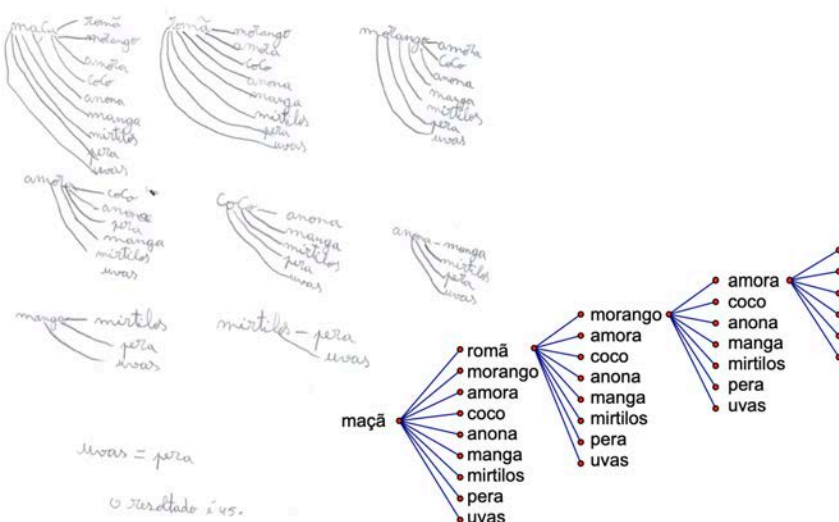 maçã
romã
morango
amora
coco
anona
manga
mirtilos
pera
uvas
romã
morango
amora
coco
anona
manga
mirtilos
pera
uvas
morango
amora
coco
anona
manga
mirtilos
pera
uvas
amora
coco
anona
pera
manga
mirtilos
uvas
coco
anona
manga
mirtilos
pera
uvas
anona - manga
mirtilos
pera
uvas
manga
mirtilos
pera
uvas
mirtilos - pera
uvas
uvas = pera
O resultado é 45.
maçã
romã
morango
amora
coco
anona
manga
mirtilos
pera
uvas
morango
amora
coco
anona
manga
mirtilos
pera
uvas
amora
coco
anona
manga
mirtilos
pera
uvas